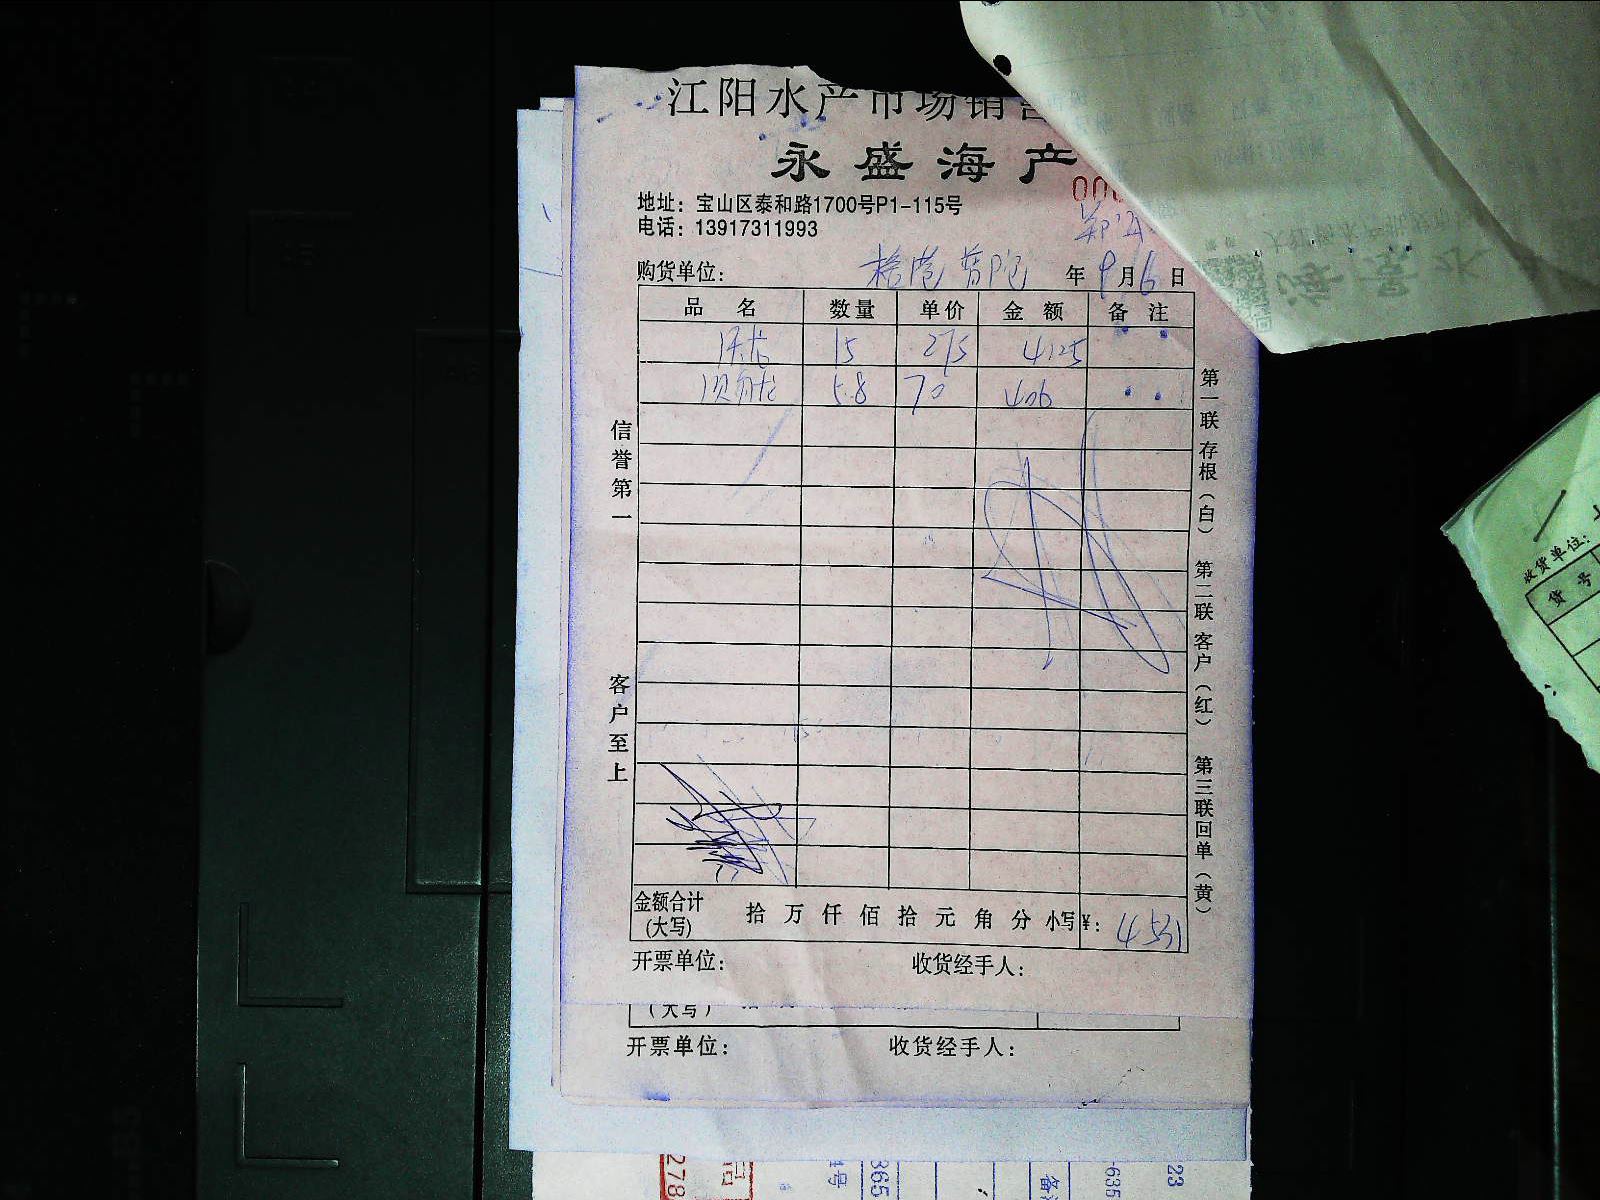 江阳水产市场销售
永盛海产
000
地址：宝山区泰和路1700号P1-115号
电话：13917311993
购货单位： 年9月6日
品名 数量 单价 金额 备注
沃龙 15 275 4125
5.8 70 406
信誉第一
客户至上
第一联存根（白） 第二联客户（红） 第三联回单（黄）
金额合计（大写） 拾万仟佰拾元角分 小写¥：4531
开票单位： 收货经手人：
（大写）
开票单位： 收货经手人：
收货单位：
货号
278
365
-635
23